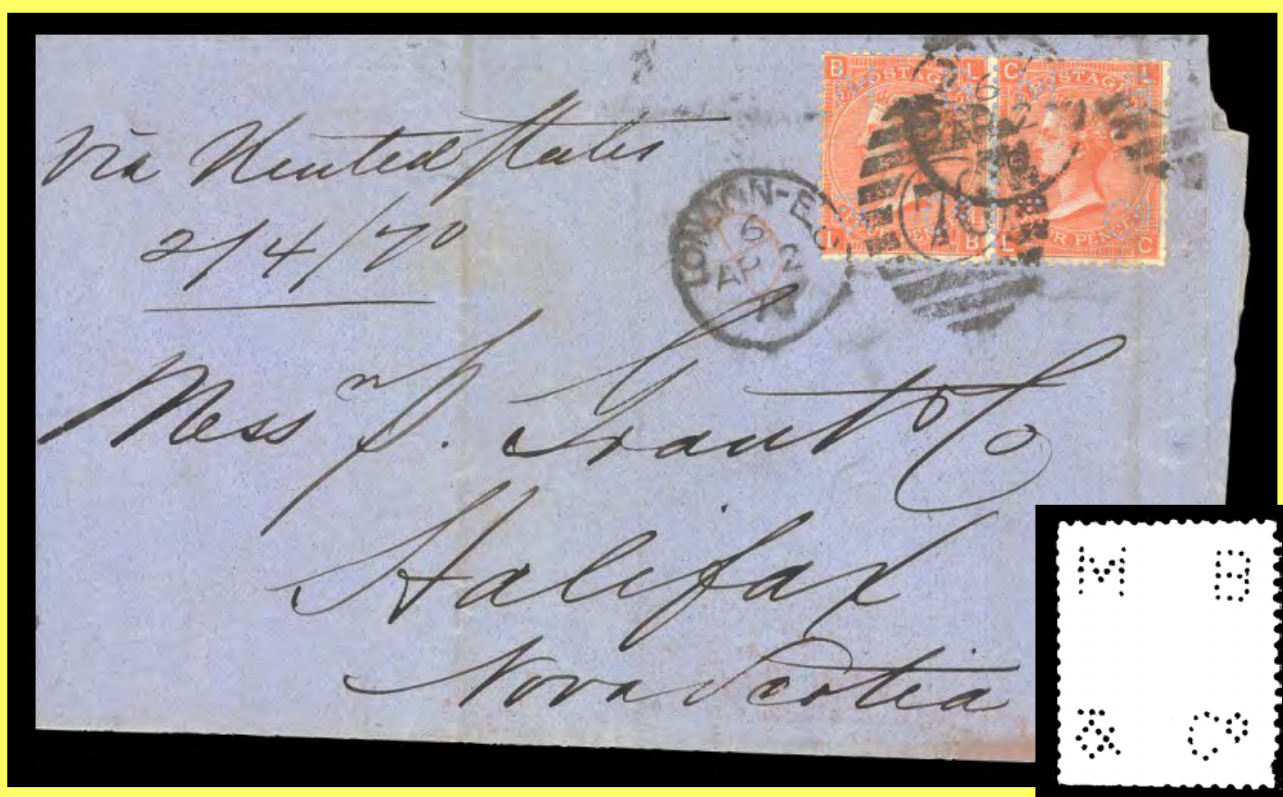 via United States
2/4/70
Mess rs J. Grant & Co
Halifax
Nova Scotia
LONDON-E.C
6
AP 2
70
B POSTAGE L
L B
C POSTAGE L
L FOUR PENCE C
6
AP 2
70
M B
& Co